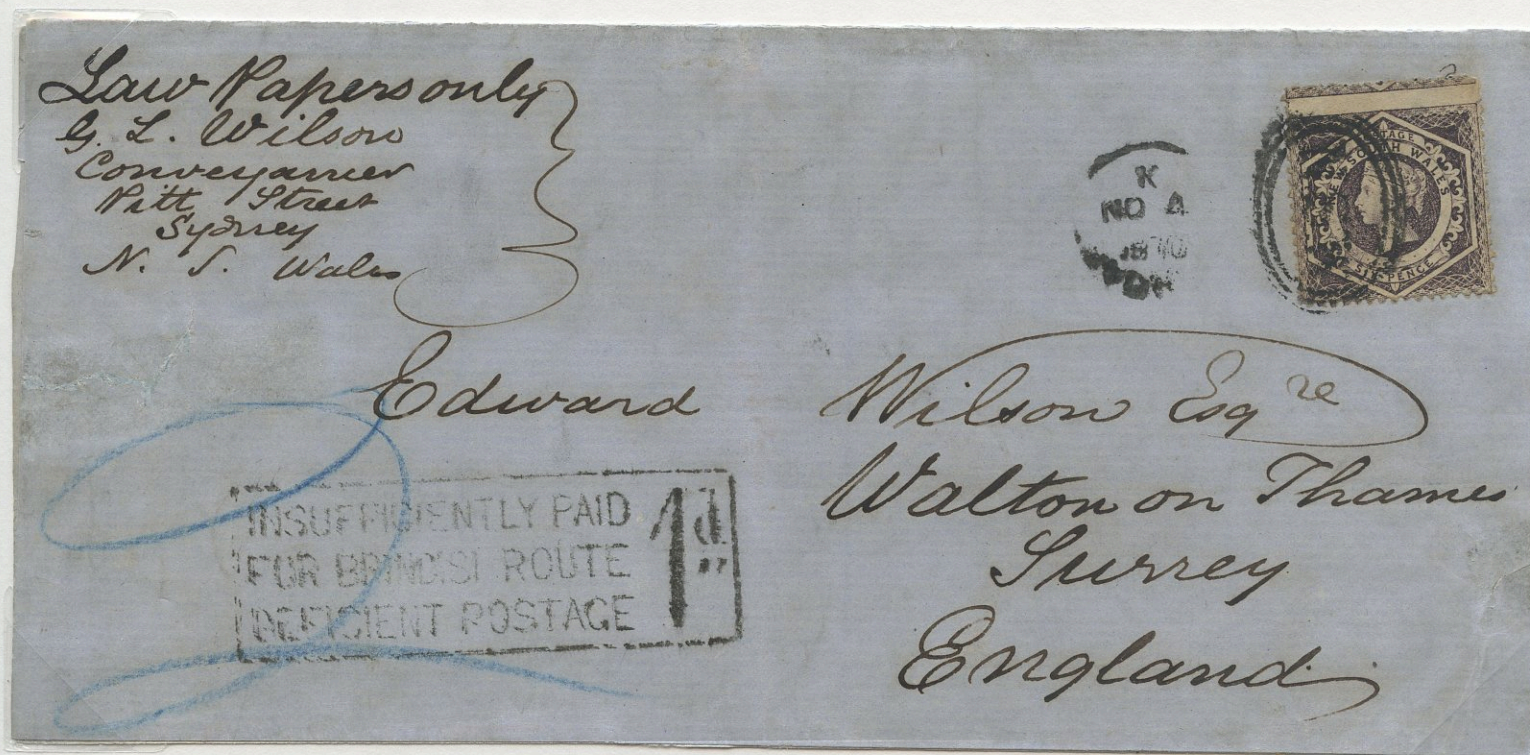 Law Papers only
G. L. Wilson
Conveyancer
Pitt Street
Sydney
N. S. Wales
K
NO 4
1870
POSTAGE
NEW SOUTH WALES
SIX-PENCE
Edward Wilson Esqre
Walton on Thames
Surrey
England
INSUFFICIENTLY PAID
FOR BRINDISI ROUTE
DEFICIENT POSTAGE
1d